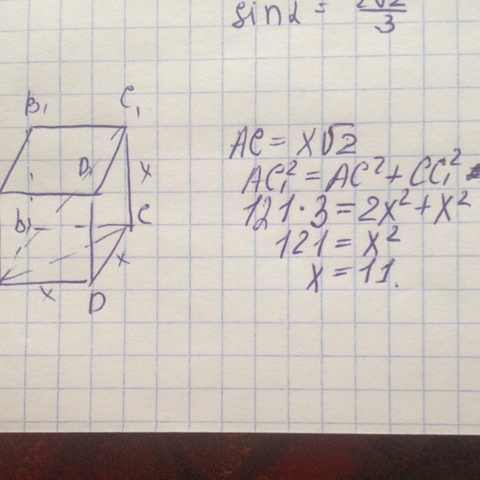 sin α = 2√2/3
B₁ C₁
D₁ x
B C
x
x D
AC = x√2
AC₁² = AC² + CC₁²
121·3 = 2x² + x²
121 = x²
x = 11.